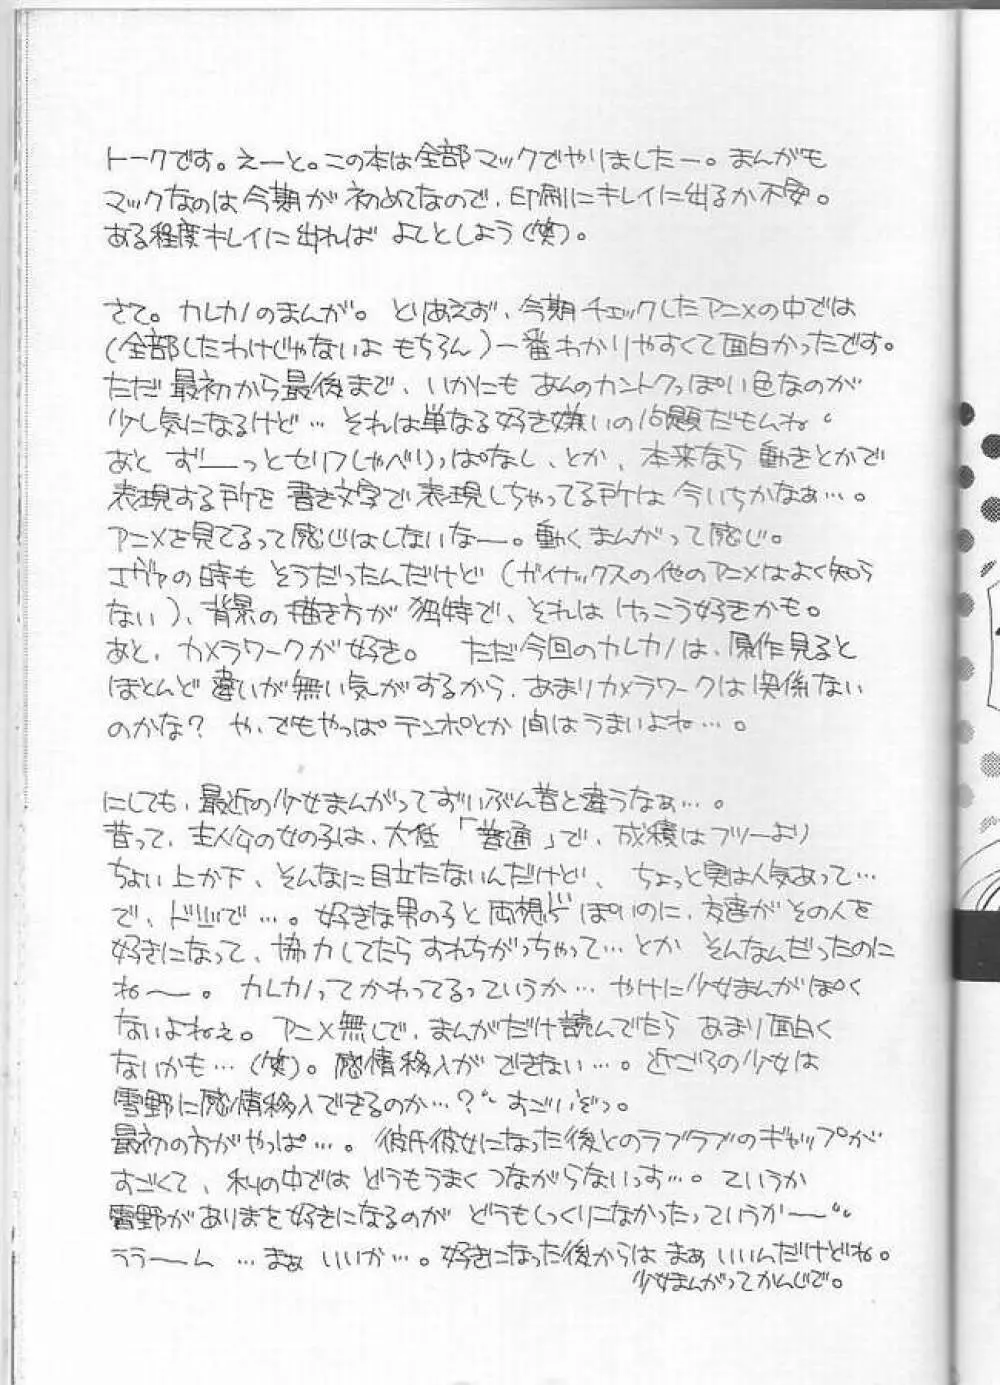 トークです。えーと。この本は全部マックでやりましたー。まんがも
マックなのは今期が初めてなので、印刷にキレイに出るか不安。
ある程度キレイに出ればよしとしよう(笑)。
さて。カレカノのまんが。とりあえず、今期チェックしたアニメの中では
(全部したわけじゃないよもちろん)一番わかりやすくて面白かったです。
ただ最初から最後まで、いかにもあんのカントクっぽい色なのが
少し気になるけど…それは単なる好き嫌いの問題だもんね。
あとずーーっとセリフしゃべりっぱなし、とか、本来なら動きとかで
表現する所を書き文字で表現しちゃってる所は今いちかなぁ…。
アニメを見てるって感じはしないなー。動くまんがって感じ。
エヴァの時もそうだったんだけど(ガイナックスの他のアニメはよく知ら
ない)、背景の描き方が独特で、それはけっこう好きかも。
あと、カメラワークが好き。ただ今回のカレカノは、原作見ると
ほとんど違いが無い気がするから、あまりカメラワークは関係ない
のかな?や、でもやっぱテンポとか間はうまいよね…。
にしても、最近の少女まんがってずいぶん昔と違うなぁ…。
昔って、主人公の女の子は、大低「普通」で、成績はフツーより
ちょい上か下、そんなに目立たないんだけど、ちょっと実は人気あって…
で、ドジで…。好きな男の子と両想いっぽいのに、友達がその人を
好きになって、協力してたらすれちがっちゃって…とかそんなんだったのに
ね〜。カレカノってかわってるっていうか…やけに少女まんがぽく
ないよねぇ。アニメ無しで、まんがだけ読んでたらあまり面白く
ないかも…(笑)。感情移入ができない…。近ごろの少女は
雪野に感情移入できるのか…?すごいぞっ。
最初の方がやっぱ…。彼氏彼女になった後とのラブラブのギャップが
すごくて、私の中ではどうもうまくつながらないっす…。ていうか
雪野がありまを好きになるのがどうもしっくりこなかったっていうか〜
ううーん…まぁいいか…。好きになった後からはまぁいいんだけどね。
少女まんがってかんじで。